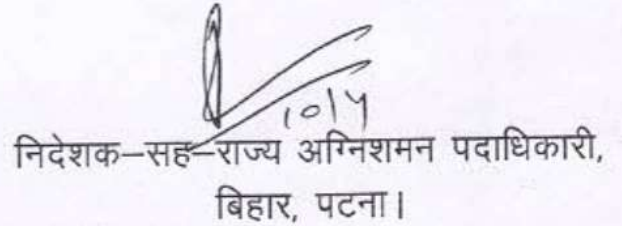 10/4
निदेशक–सह–राज्य अग्निशमन पदाधिकारी,
बिहार, पटना।